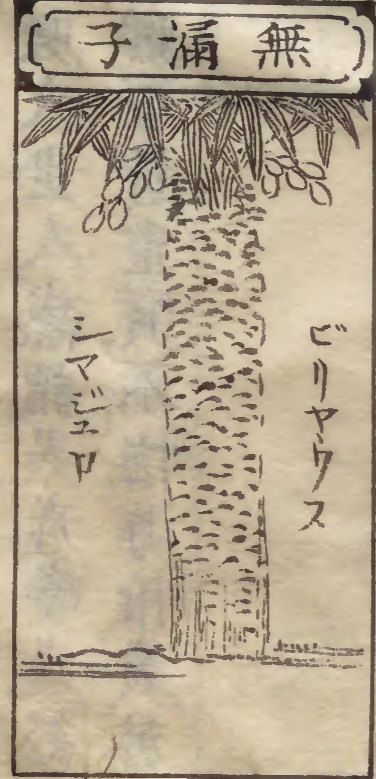 無漏子
ビリヤウス
シマジユロ